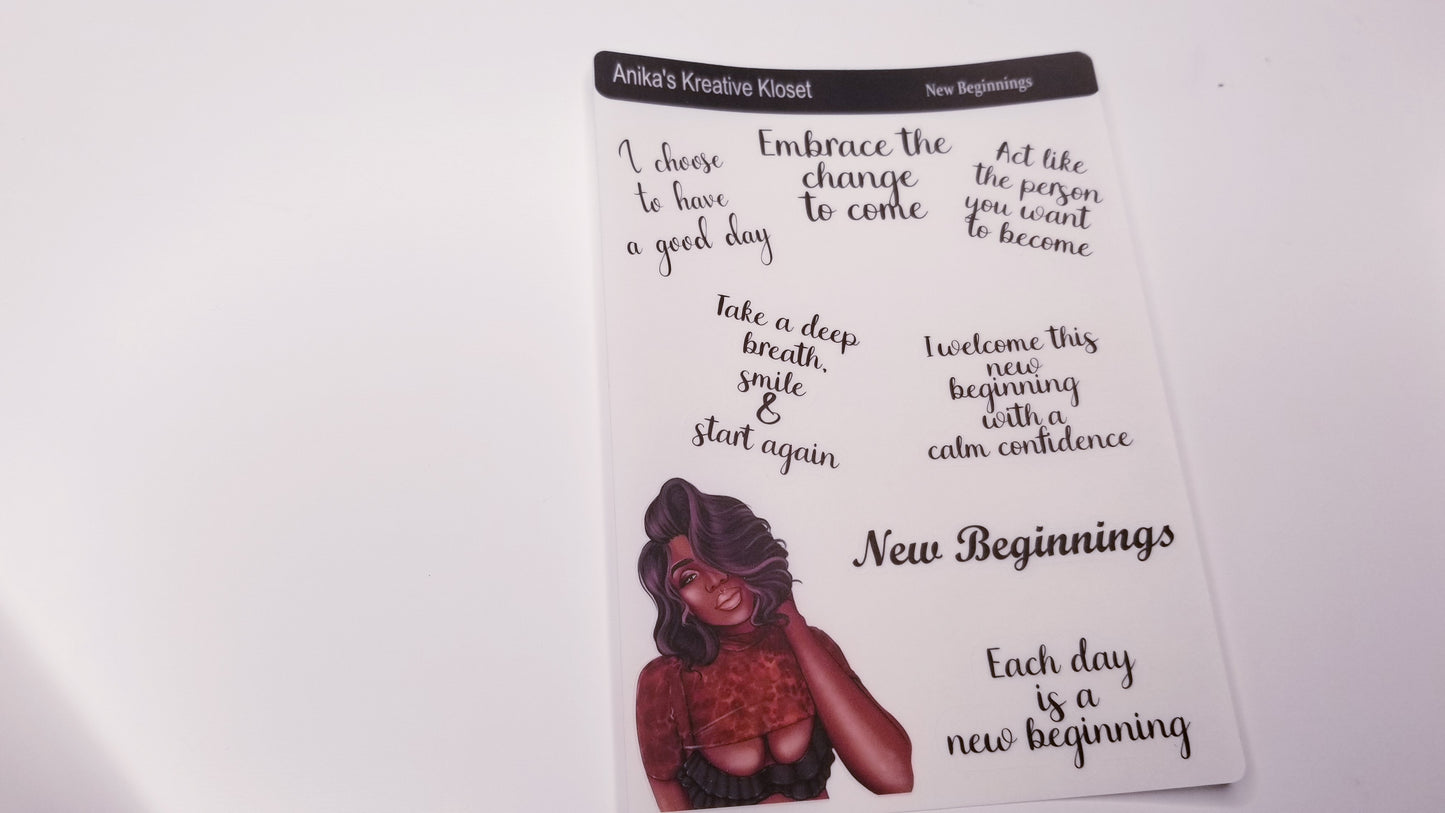 Anika's Kreative Kloset
New Beginnings
I choose
to have
a good day
Embrace the
change
to come
Act like
the person
you want
to become
Take a deep
breath,
smile
&
start again
I welcome this
new
beginning
with a
calm confidence
New Beginnings
Each day
is a
new beginning